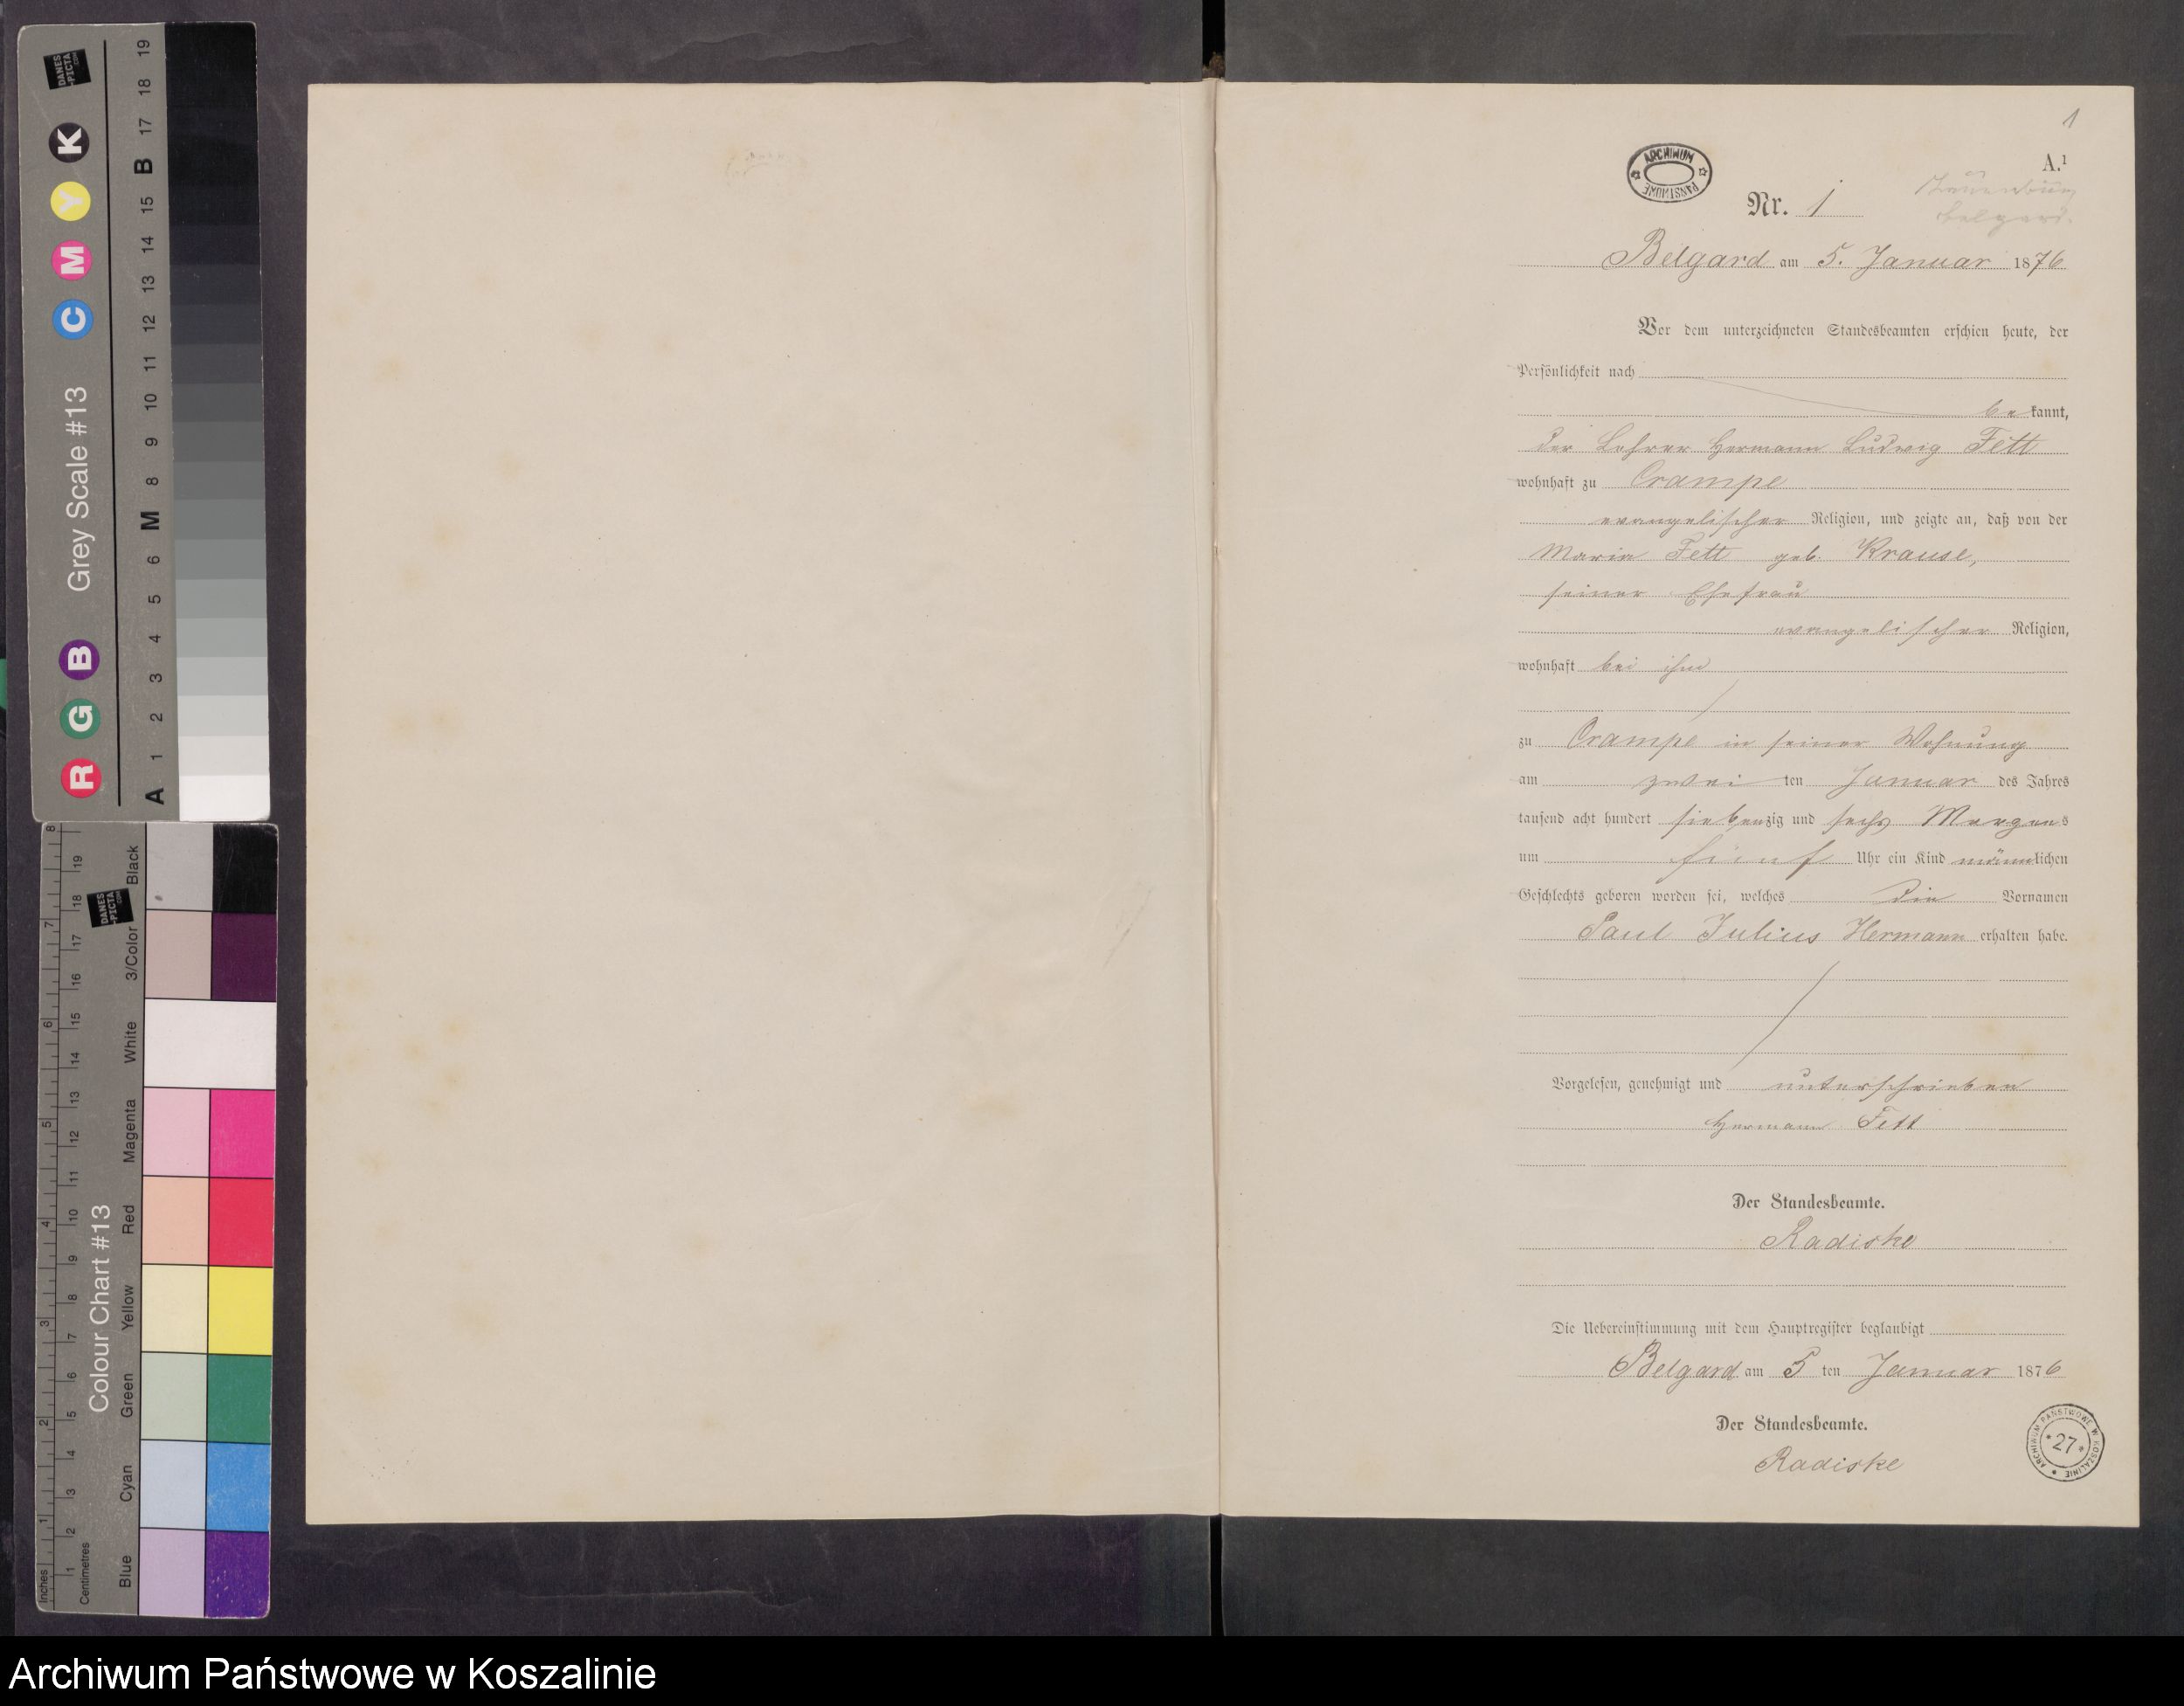 1
A.¹
ARCHIWUM PAŃSTWOWE
Nr. 1
Belgard.
Belgard am 5. Januar 1876
Vor dem unterzeichneten Standesbeamten erschien heute, der
Persönlichkeit nach
bekannt,
der Lehrer Hermann Ludwig Fett
wohnhaft zu Crampe
evangelischer Religion, und zeigte an, daß von der
Maria Fett geb. Krause,
seiner Ehefrau
evangelischer Religion,
wohnhaft bei ihm
zu Crampe in seiner Wohnung
am zwei ten Januar des Jahres
tausend acht hundert siebenzig und sechs Morgens
um fünf Uhr ein Kind männlichen
Geschlechts geboren worden sei, welches die Vornamen
Paul Julius Hermann erhalten habe.
Vorgelesen, genehmigt und unterschrieben
Hermann Fett
Der Standesbeamte.
Radiske
Die Uebereinstimmung mit dem Hauptregister beglaubigt
Belgard am 5 ten Januar 1876
Der Standesbeamte.
Radiske
ARCHIWUM PAŃSTWOWE W KOSZALINIE
*27*
Grey Scale #13
R G B C M Y K
A 1 2 3 4 5 6 M 8 9 10 11 12 13 14 15 B 17 18 19
DANES-PICTA.COM
Colour Chart #13
Blue Cyan Green Yellow Red Magenta White 3/Color Black
Inches 1 2 3 4 5 6 7 8
Centimetres 1 2 3 4 5 6 7 8 9 10 11 12 13 14 15 16 17 18 19
DANES-PICTA.COM
Archiwum Państwowe w Koszalinie